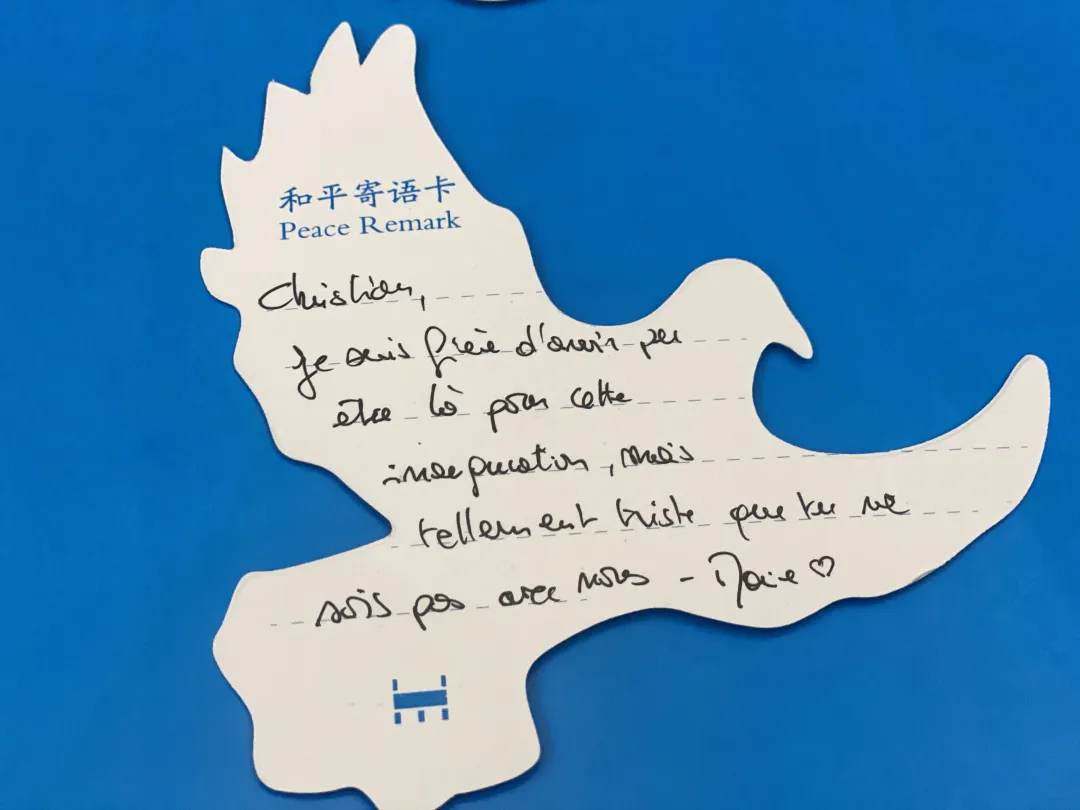 和平寄语卡
Peace Remark
Christian,
Je suis fière d'avoir pu
être là pour cette
inauguration, mais
tellement triste que tu ne
sois pas avec nous - Marie ♡